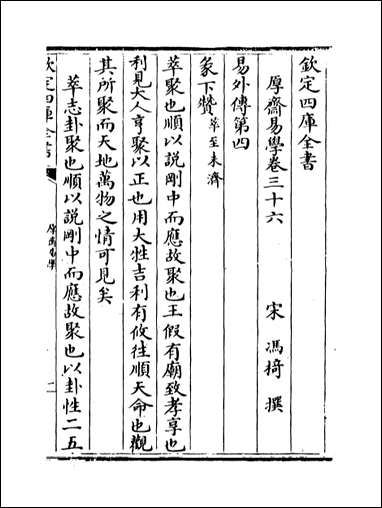 欽定四庫全書
厚齋易學卷三十六
宋 馮椅 撰
易外傳第四
彖下贊萃至未濟
萃聚也順以說剛中而應故聚也王假有廟致孝享也
利見大人亨聚以正也用大牲吉利有攸往順天命也觀
其所聚而天地萬物之情可見矣
萃志卦聚也順以說剛中而應故聚也以卦性二五
欽定四庫全書
厚齋易學